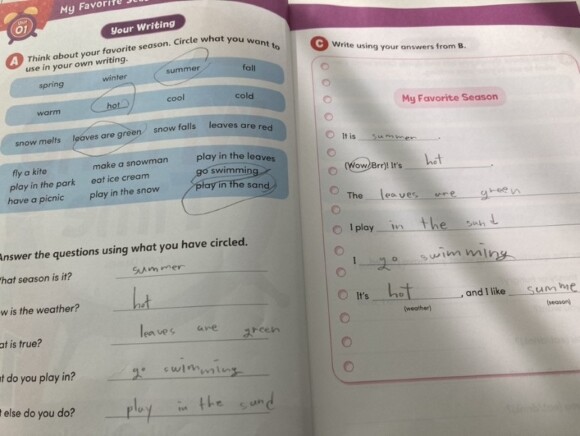 My Favorite
Unit
01
Your Writing
A Think about your favorite season. Circle what you want to
use in your own writing.
spring winter summer fall
warm hot cool cold
snow melts leaves are green snow falls leaves are red
fly a kite make a snowman play in the leaves
play in the park eat ice cream go swimming
have a picnic play in the snow play in the sand
Answer the questions using what you have circled.
hat season is it? summer
w is the weather? hot
at is true? leaves are green
t do you play in? go swimming
else do you do? play in the sand
C Write using your answers from B.
My Favorite Season
It is summer.
(Wow/Brr)! It's hot.
The leaves are green
I play in the sand
I go swimming
It's hot, and I like summe
(weather) (season)